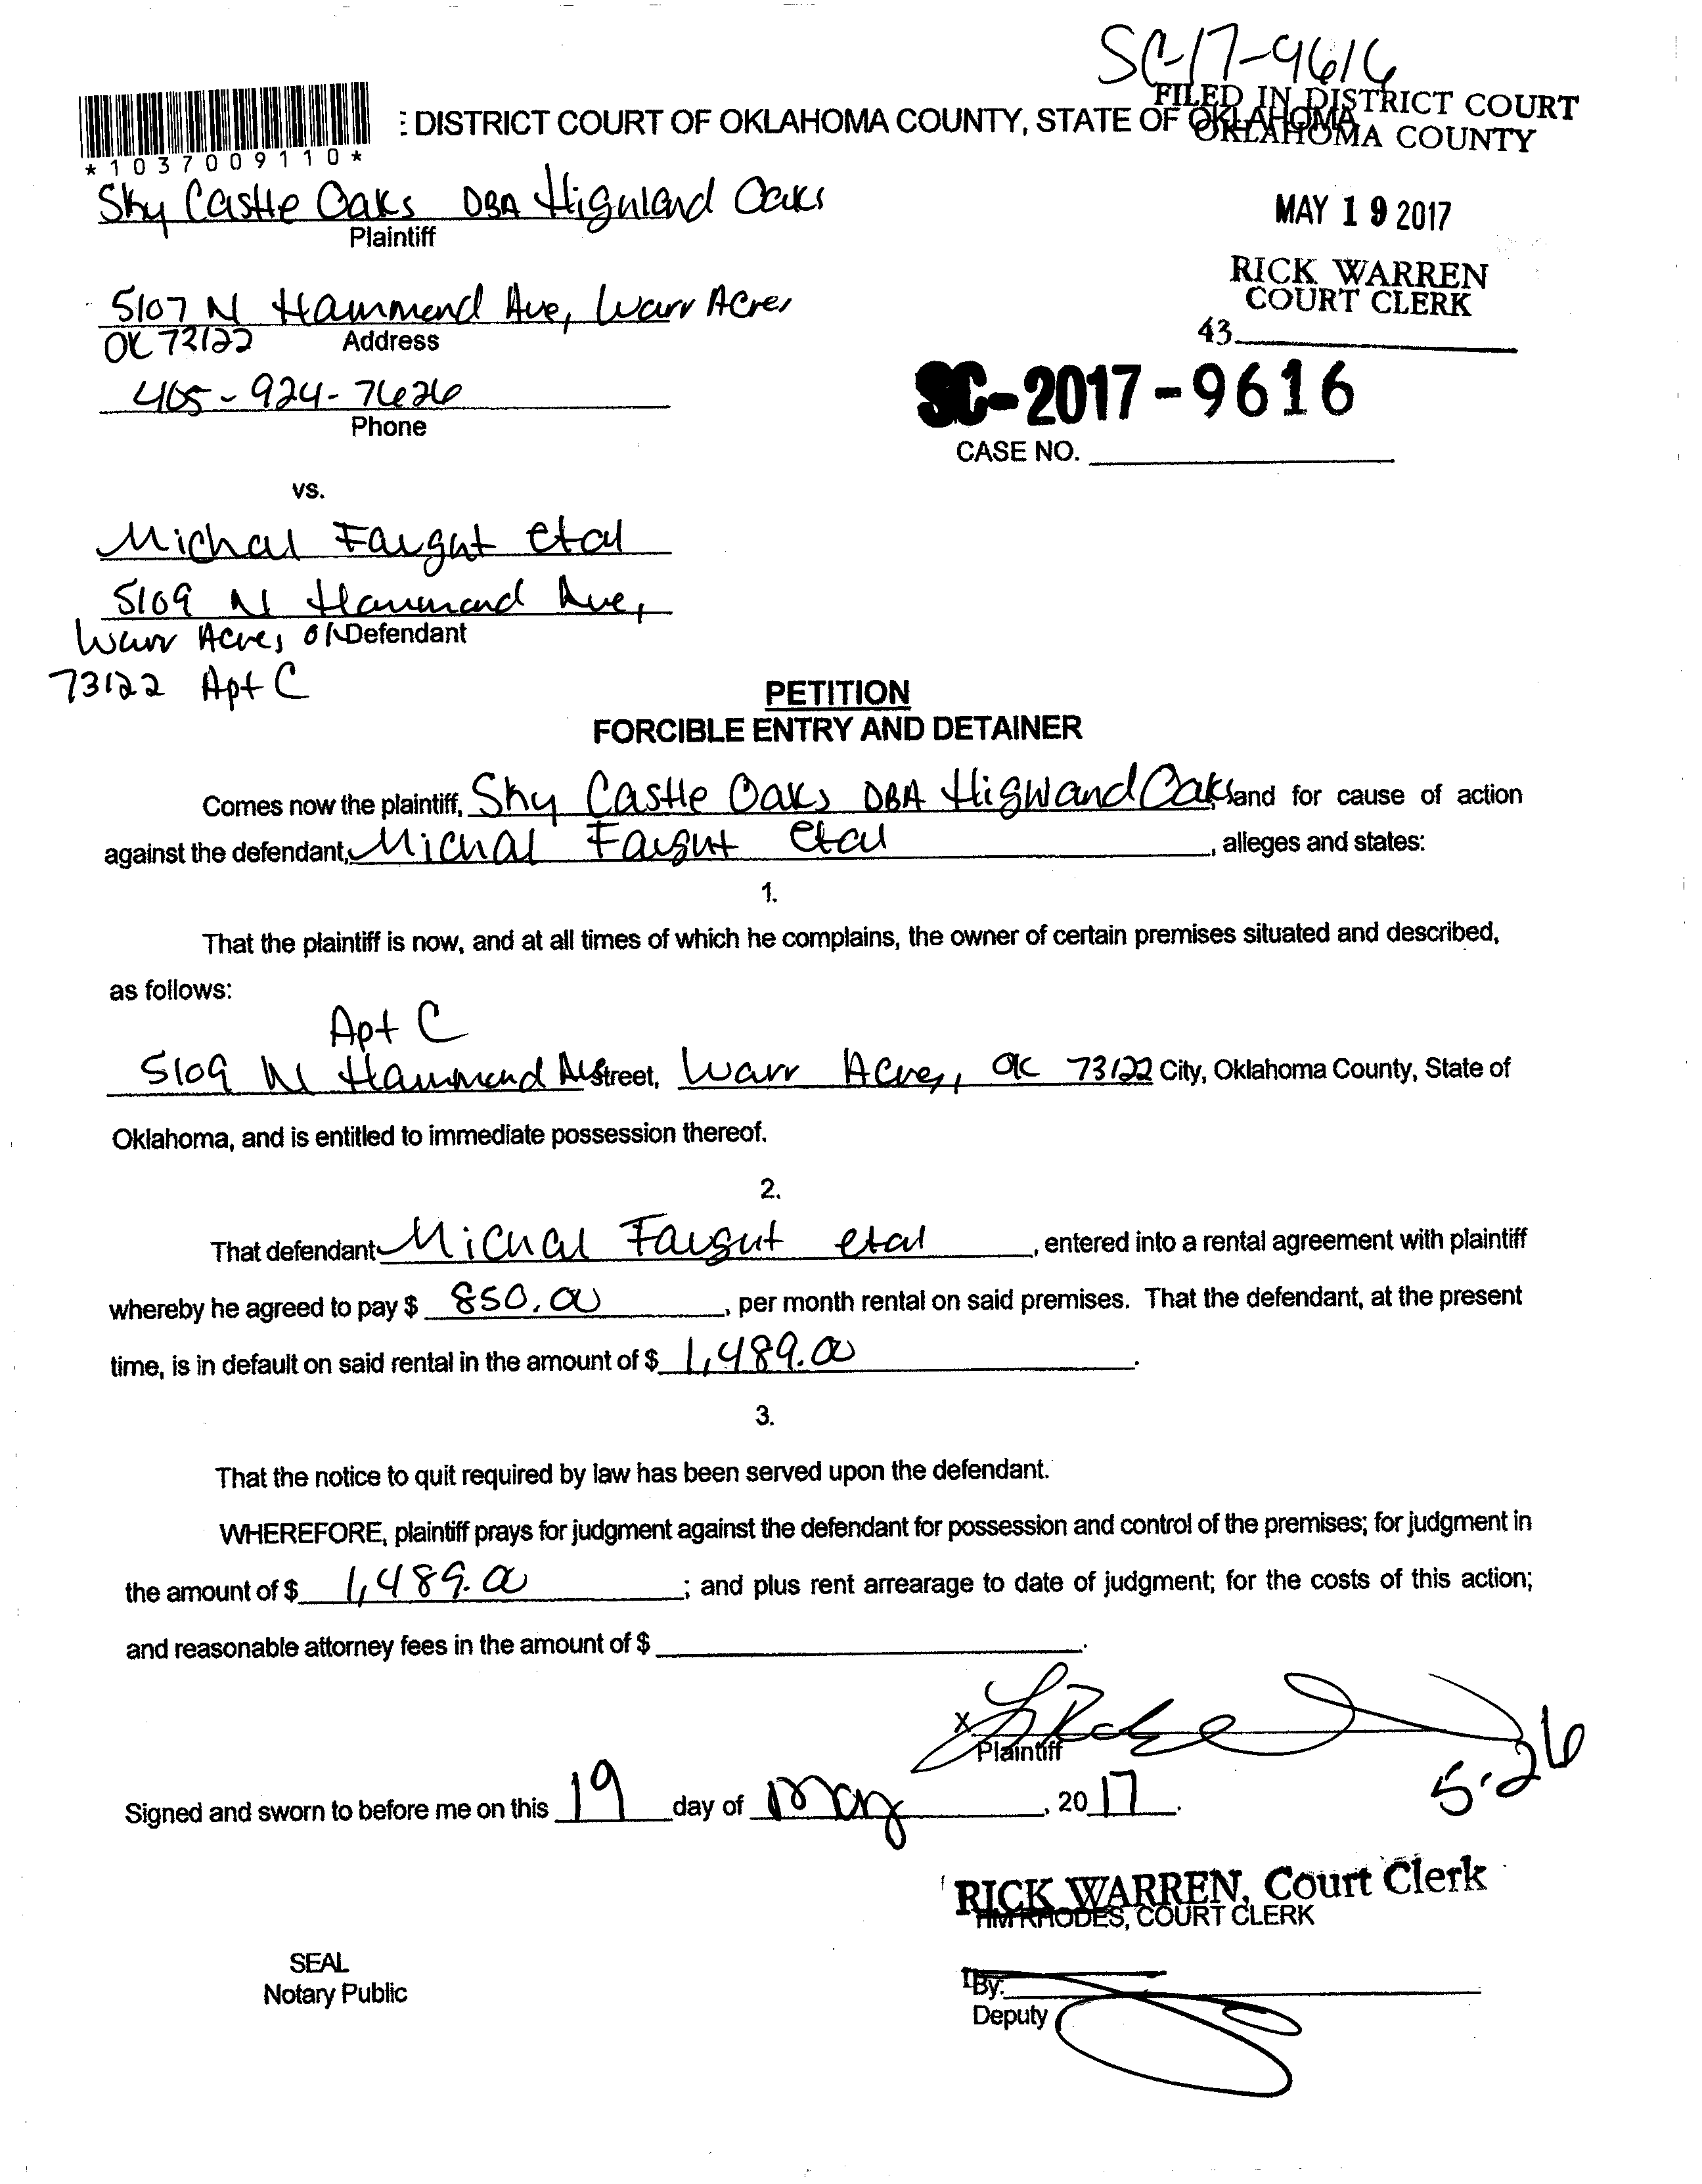 SC-17-9616
FILED IN DISTRICT COURT
: DISTRICT COURT OF OKLAHOMA COUNTY, STATE OF OKLAHOMA
OKLAHOMA COUNTY
*1037009110*
Sky Castle Oaks DBA Highland Oaks
Plaintiff
MAY 19 2017
RICK WARREN
COURT CLERK
43
5107 N Hammond Ave, Warr Acres
OK 73122 Address
405-924-7626
Phone
SC-2017-9616
CASE NO.
vs.
Michal Faught etal
5109 N Hammond Ave,
Warr Acres OK Defendant
73122 Apt C
PETITION
FORCIBLE ENTRY AND DETAINER
Comes now the plaintiff, Sky Castle Oaks DBA Highland Oaks, and for cause of action
against the defendant, Michal Faught etal, alleges and states:
1.
That the plaintiff is now, and at all times of which he complains, the owner of certain premises situated and described,
as follows:
Apt C
5109 N Hammond Ave Street, Warr Acres, OK 73122 City, Oklahoma County, State of
Oklahoma, and is entitled to immediate possession thereof.
2.
That defendant Michal Faught etal, entered into a rental agreement with plaintiff
whereby he agreed to pay $ 850.00, per month rental on said premises. That the defendant, at the present
time, is in default on said rental in the amount of $ 1,489.00.
3.
That the notice to quit required by law has been served upon the defendant.
WHEREFORE, plaintiff prays for judgment against the defendant for possession and control of the premises; for judgment in
the amount of $ 1,489.00; and plus rent arrearage to date of judgment; for the costs of this action;
and reasonable attorney fees in the amount of $ .
X
Plaintiff
5-26
Signed and sworn to before me on this 19 day of May, 2017.
RICK WARREN, Court Clerk
TIM RHODES, COURT CLERK
SEAL
Notary Public
By:
Deputy